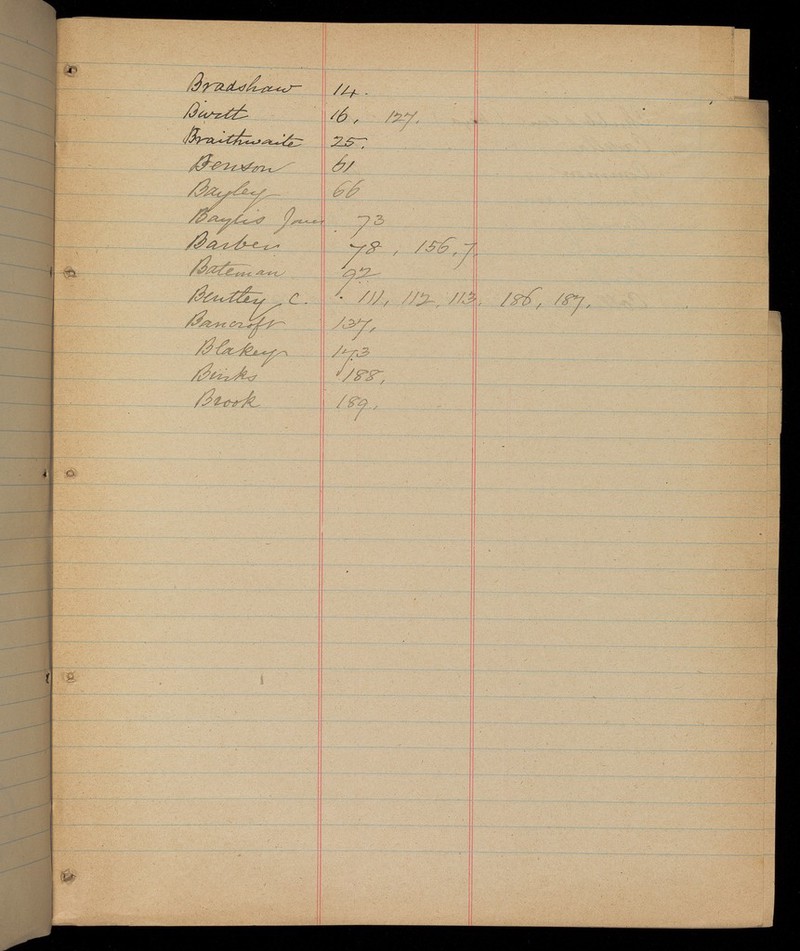 Bradshaw 14.
16, 127.
Braithwaite 25.
Benson 61
Bayley 66
Baylis Jones 73
Barber 78, 156, 7.
Bateman 92
Bentley C. 111, 112, 113, 186, 187.
Bancroft 137,
Blakey 173
Binks 188,
Brook 189,